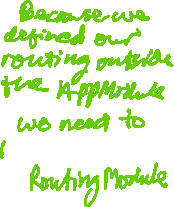 Because we
defined our
routing outside
the AppModule
we need to
RoutingModule